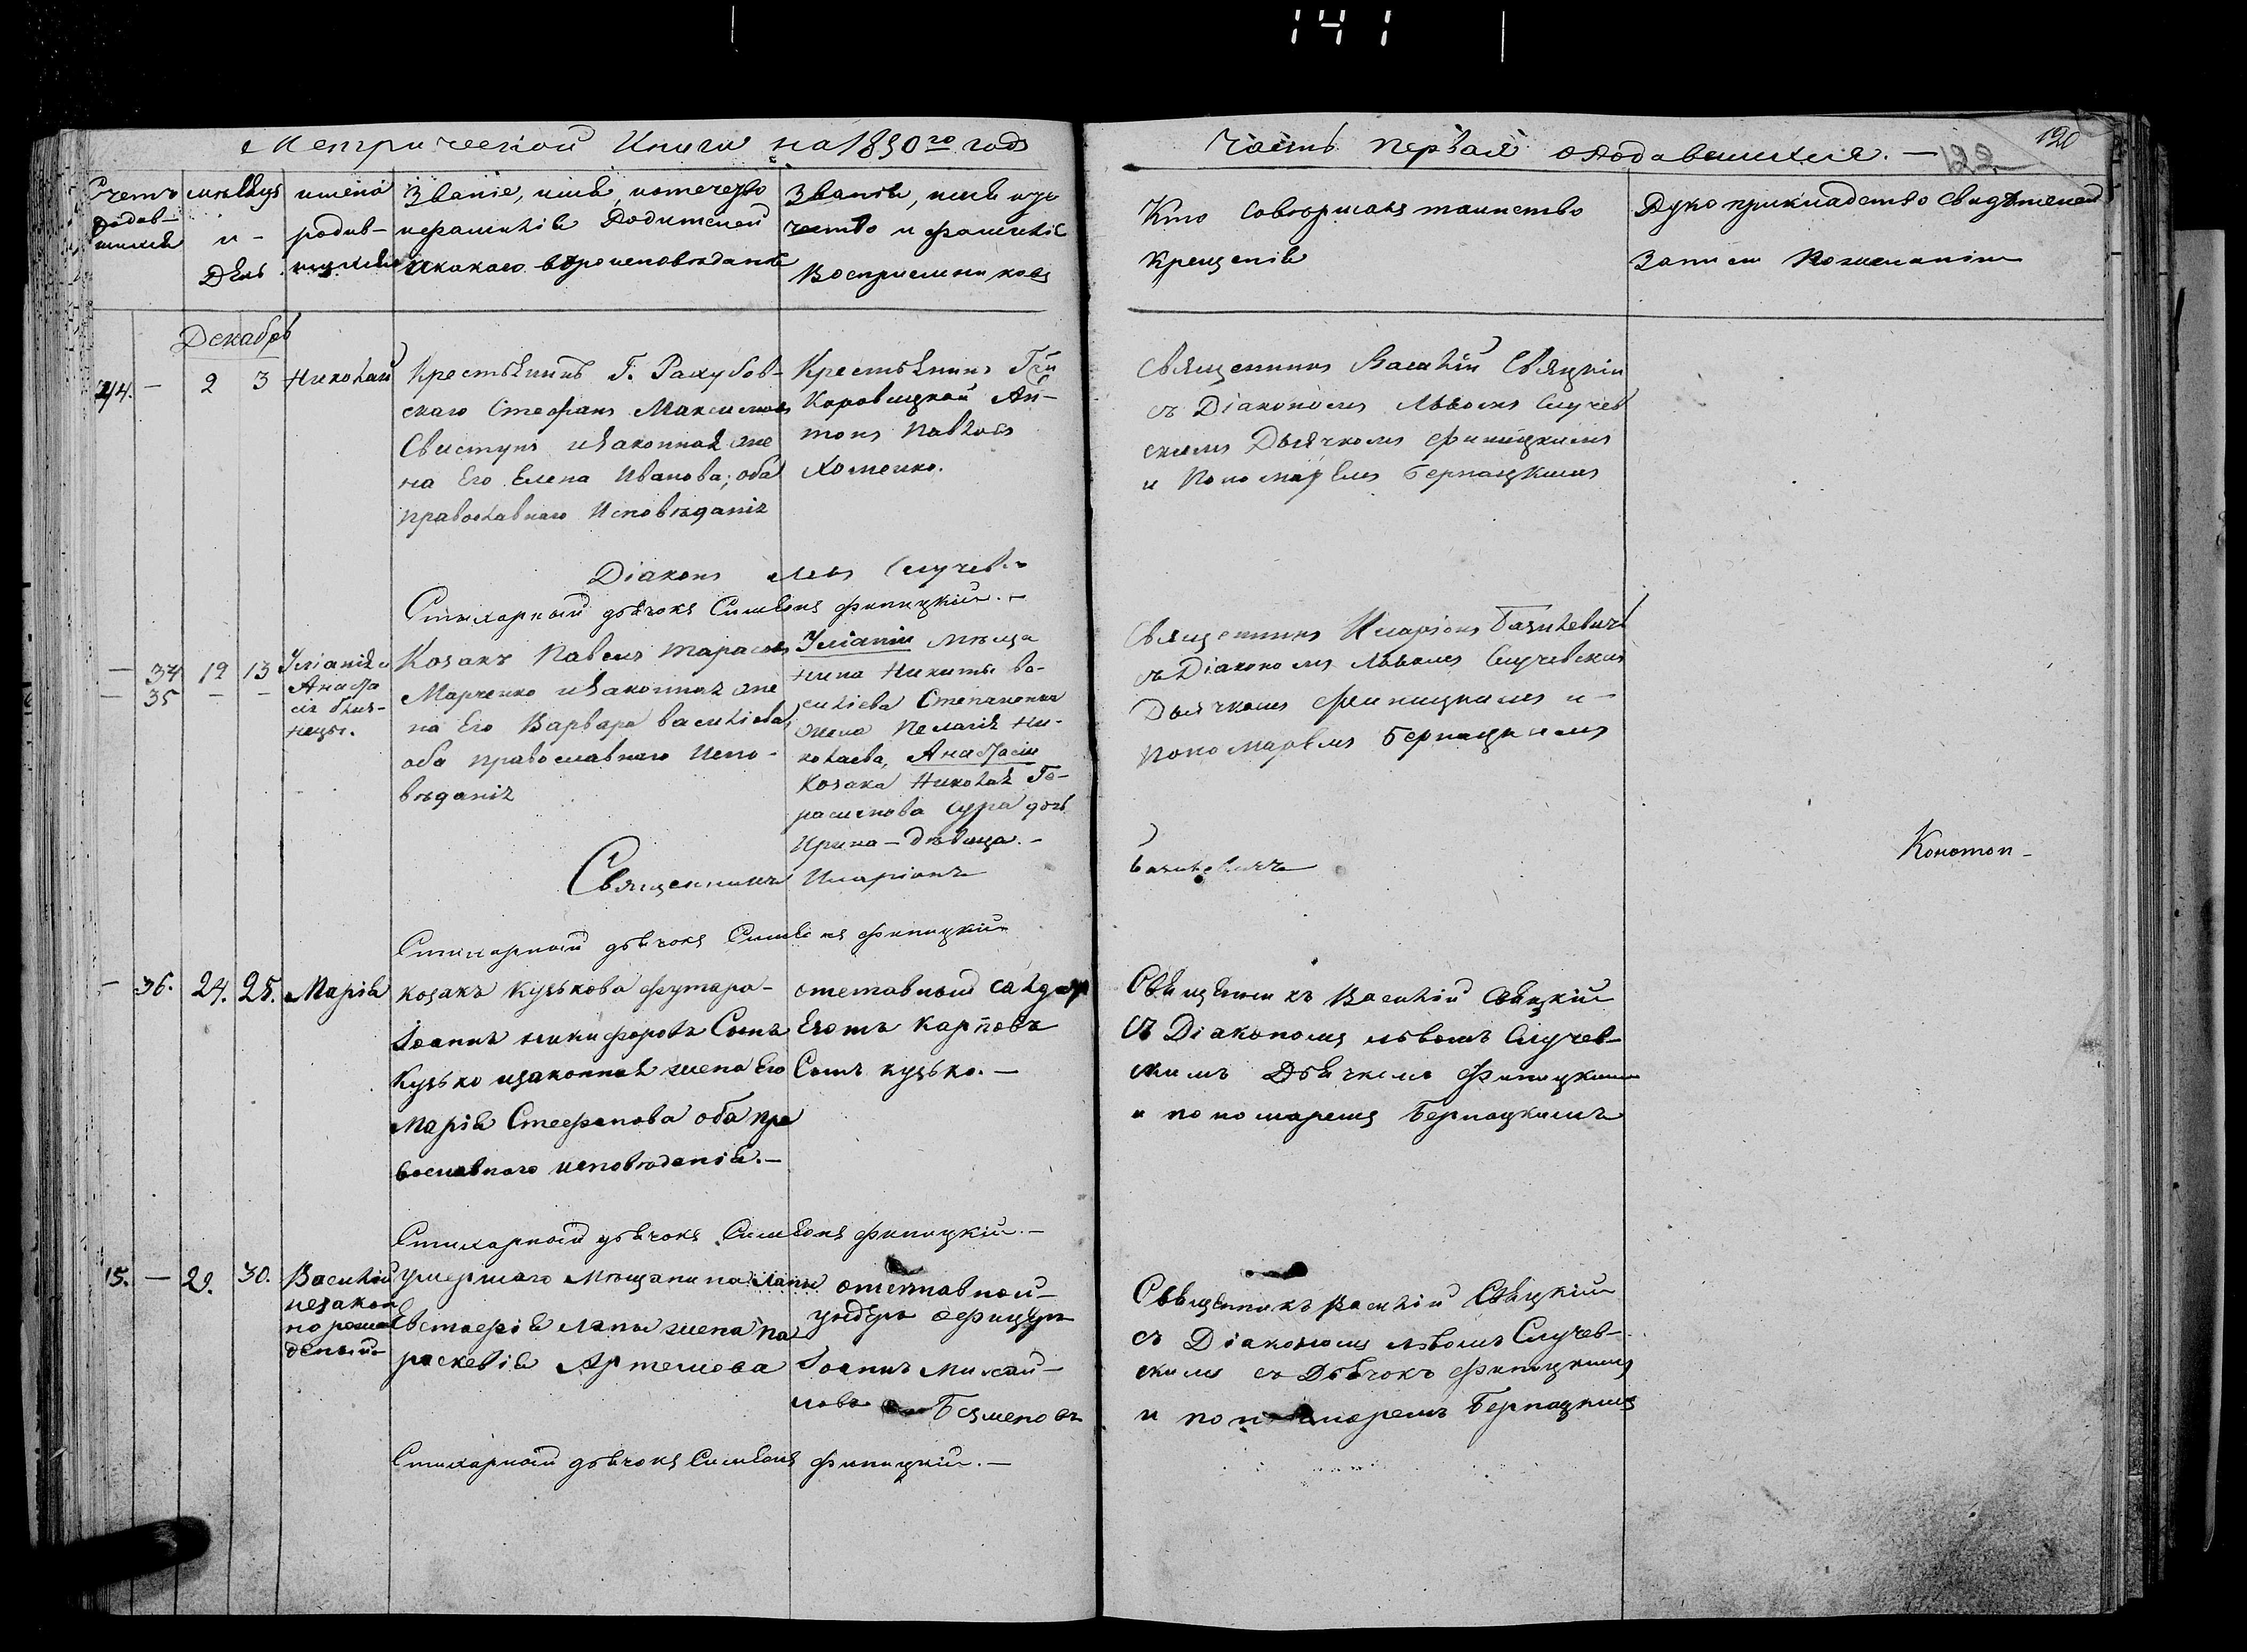 141
Метрической Книги на 1850го годъ
Часть первая о Родавшихся. —
122
120
Счетъ родив-шихся
мѣсяцъ и - День
имена родив-шихся
Званіе, имя, и отечество
и фамилія Родителей
и какого вѣроисповѣданія
Званіе, имя
чество и фамилія
Воспріемниковъ
Кто совершалъ таинство
Крещенія
Рукоприкладство свидѣтелей
Записи По желанію
Декабрь
— 2 3 Николай
Крестьянинъ Г.
скаго Стефанъ Максимовъ
Свистунъ и законная же
на Его Елена Иванова; оба
православнаго Исповѣданія
Крестьянинъ
Ан-
тонъ Павловъ
Хоменко.
Священникъ Василій Свяцкій
съ Діакономъ Львомъ Случев
скимъ Дьячкомъ Финицкимъ
и Пономаремъ Бернацкимъ
Діаконъ Левъ Случев
Стихарный дьячокъ Симеонъ Финицкій. —
— 34 12 13 Уліанія и
— 35 — — Анаста
сія близ-
нецы.
Козакъ Павелъ Тарасовъ
Марченко и законная же
на Его Варвара Василіева
оба православнаго Испо-
вѣданія
Уліаніи мѣща
нина Никиты Ва-
силіева
жена Пелагія Ни-
колаева, Анастасіи
Козака Николая Ге-
расимова дочь
Ирина — дѣвица. —
Священникъ Иларіонъ Базилевичъ
съ Діакономъ Львомъ Случевскимъ
Дьячкомъ Финицкимъ и —
Пономаремъ Бернацкимъ
Священникъ Иларіонъ
Базилевичъ
Конотоп —
Стихарный дьячокъ Симеонъ Финицкій
— 36. 24. 25. Марія
козакъ Кузькова футара —
Іоаннъ Никифоровъ Сынъ
Кузько и законная жена Его
Марія Стефанова оба пра
вославнаго исповѣданія. —
отставный салдатъ
Карповъ
Сынъ кузько. —
Священникъ Василій Свяцкій
Съ Діакономъ Львомъ Случев-
скимъ Дьячкомъ Финицкимъ
и пономаремъ Бернацкимъ
Стихарный дьячокъ Симеонъ Финицкій. —
15. — 29. 30. Василій
незакон
но рожде
деный
Умершаго Мѣщанина
Евстафія Лапы жена па
раскевія Артемова
отставной —
ундеръ офицеръ
Іоаннъ Михай —
ловъ Безменовъ
Священникъ Василій Свяцкій
съ Діакономъ Львомъ Случев-
скимъ съ Дьячокъ Финицкимъ
и пономаремъ Бернацкимъ
Стихарный дьячокъ Симеонъ Финицкій. —